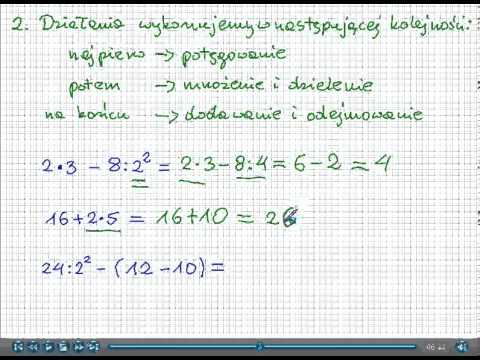 2. Działania wykonujemy w następującej kolejności:
najpierw → potęgowanie
potem → mnożenie i dzielenie
na końcu → dodawanie i odejmowanie
2·3 - 8:2² = 2·3-8:4 = 6-2 = 4
16+2·5 = 16+10 = 26
24:2² - (12-10) =